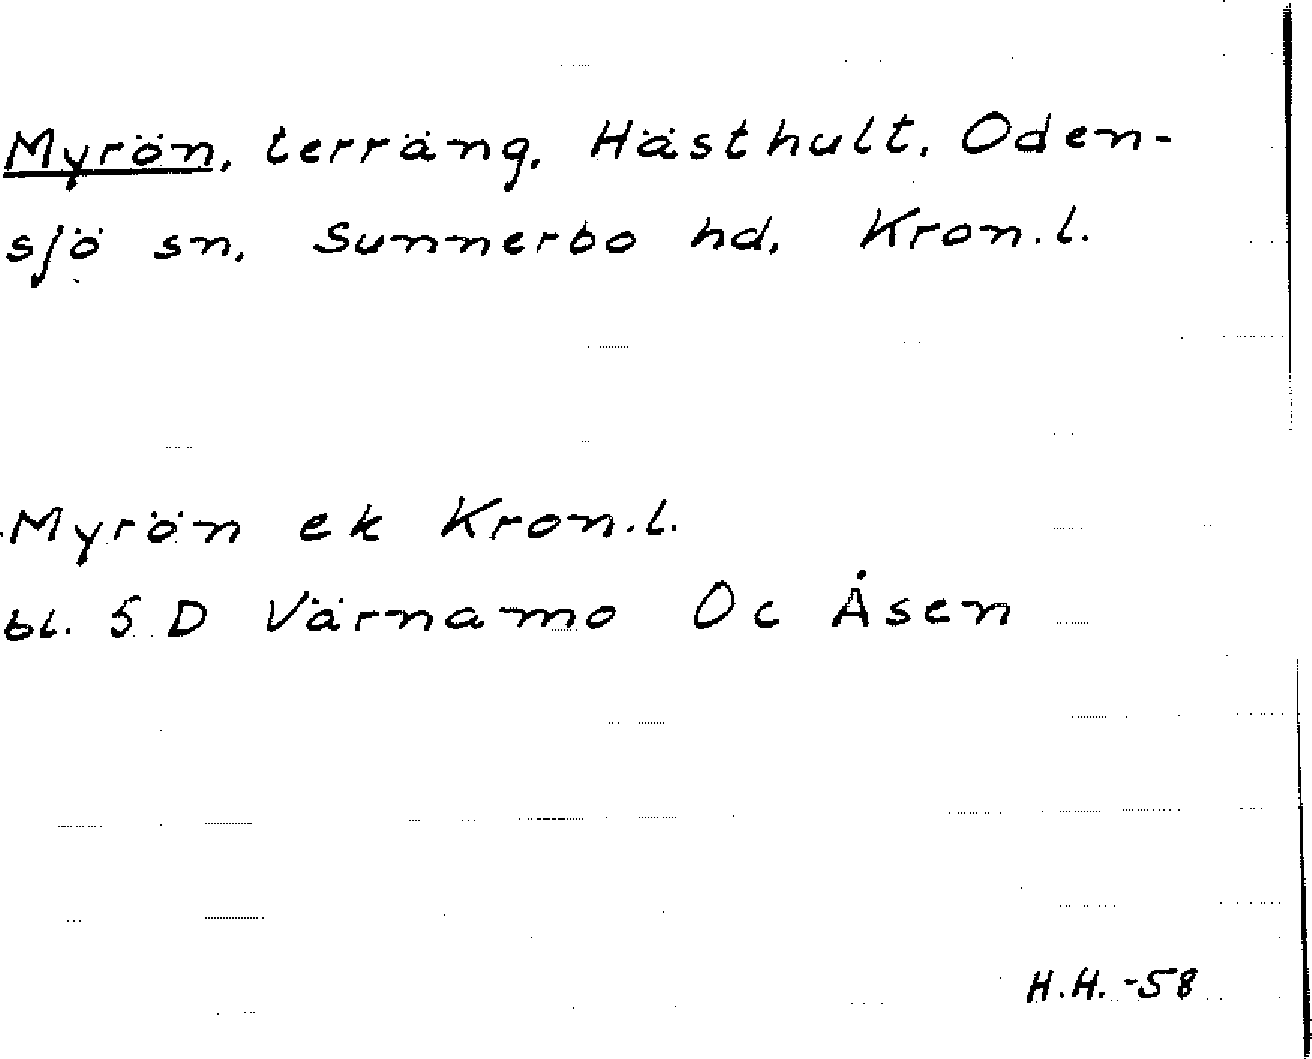 Myrön, terräng, Hästhult, Oden-
sjö sn, Sunnerbo hd, Kron.l.
Myrön ek Kron.l.
bl. 5 D Värnamo 0c Åsen
H.H. -58